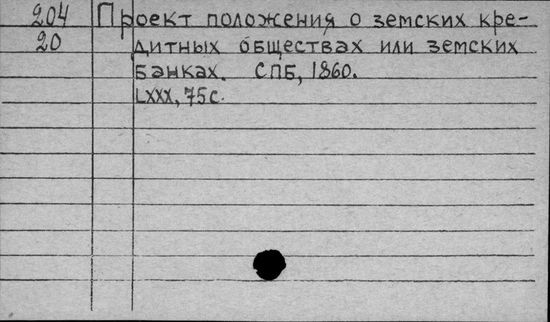 204 Проект положения о земских кре-
20 дитных обществах или земских
банках. СПБ, 1860.
LXXX, 75 с.